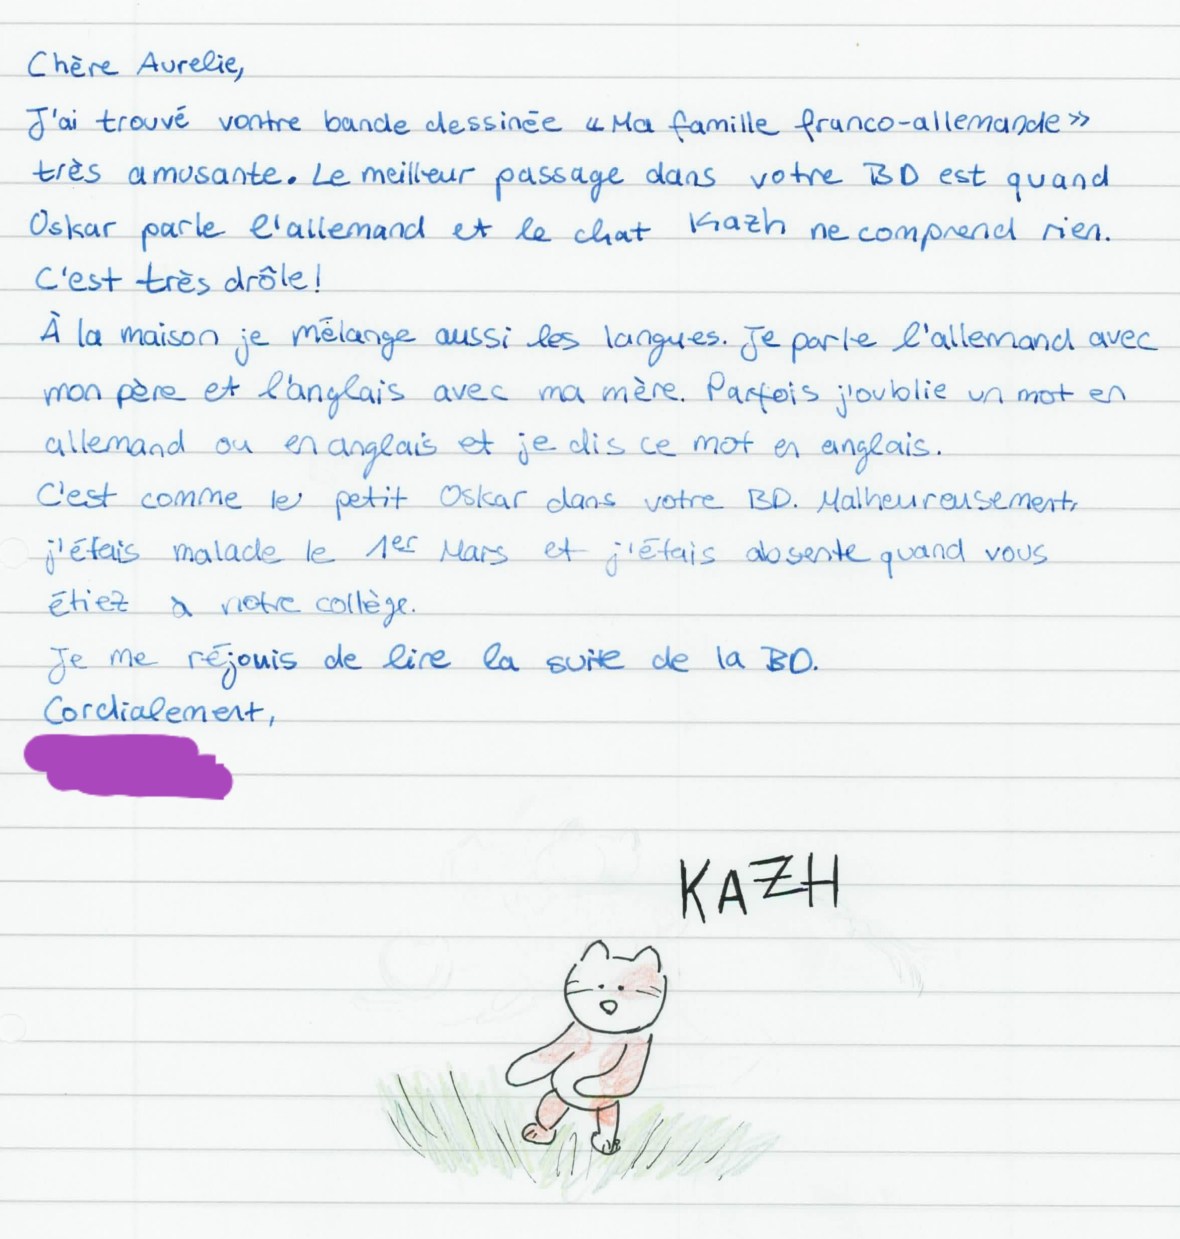 Chère Aurelie,
J'ai trouvé vontre bande dessinée « Ma famille franco-allemande »
très amusante. Le meilleur passage dans votre BD est quand
Oskar parle l'allemand et le chat Kazh ne comprend rien.
C'est très drôle!
À la maison je mélange aussi les langues. Je parle l'allemand avec
mon père et l'anglais avec ma mère. Parfois j'oublie un mot en
allemand ou en anglais et je dis ce mot en anglais.
C'est comme le petit Oskar dans votre BD. Malheureusement,
j'étais malade le 1er Mars et j'étais absente quand vous
étiez à notre collège.
Je me réjouis de lire la suite de la BD.
Cordialement,
KAZH